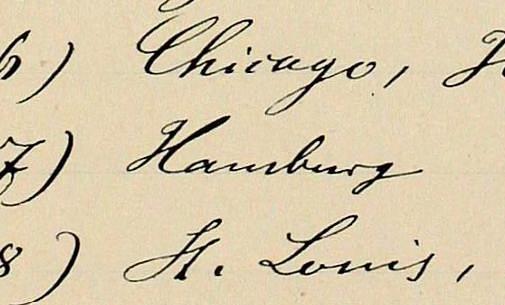 6) Chicago,
7) Hamburg
8) St. Louis,